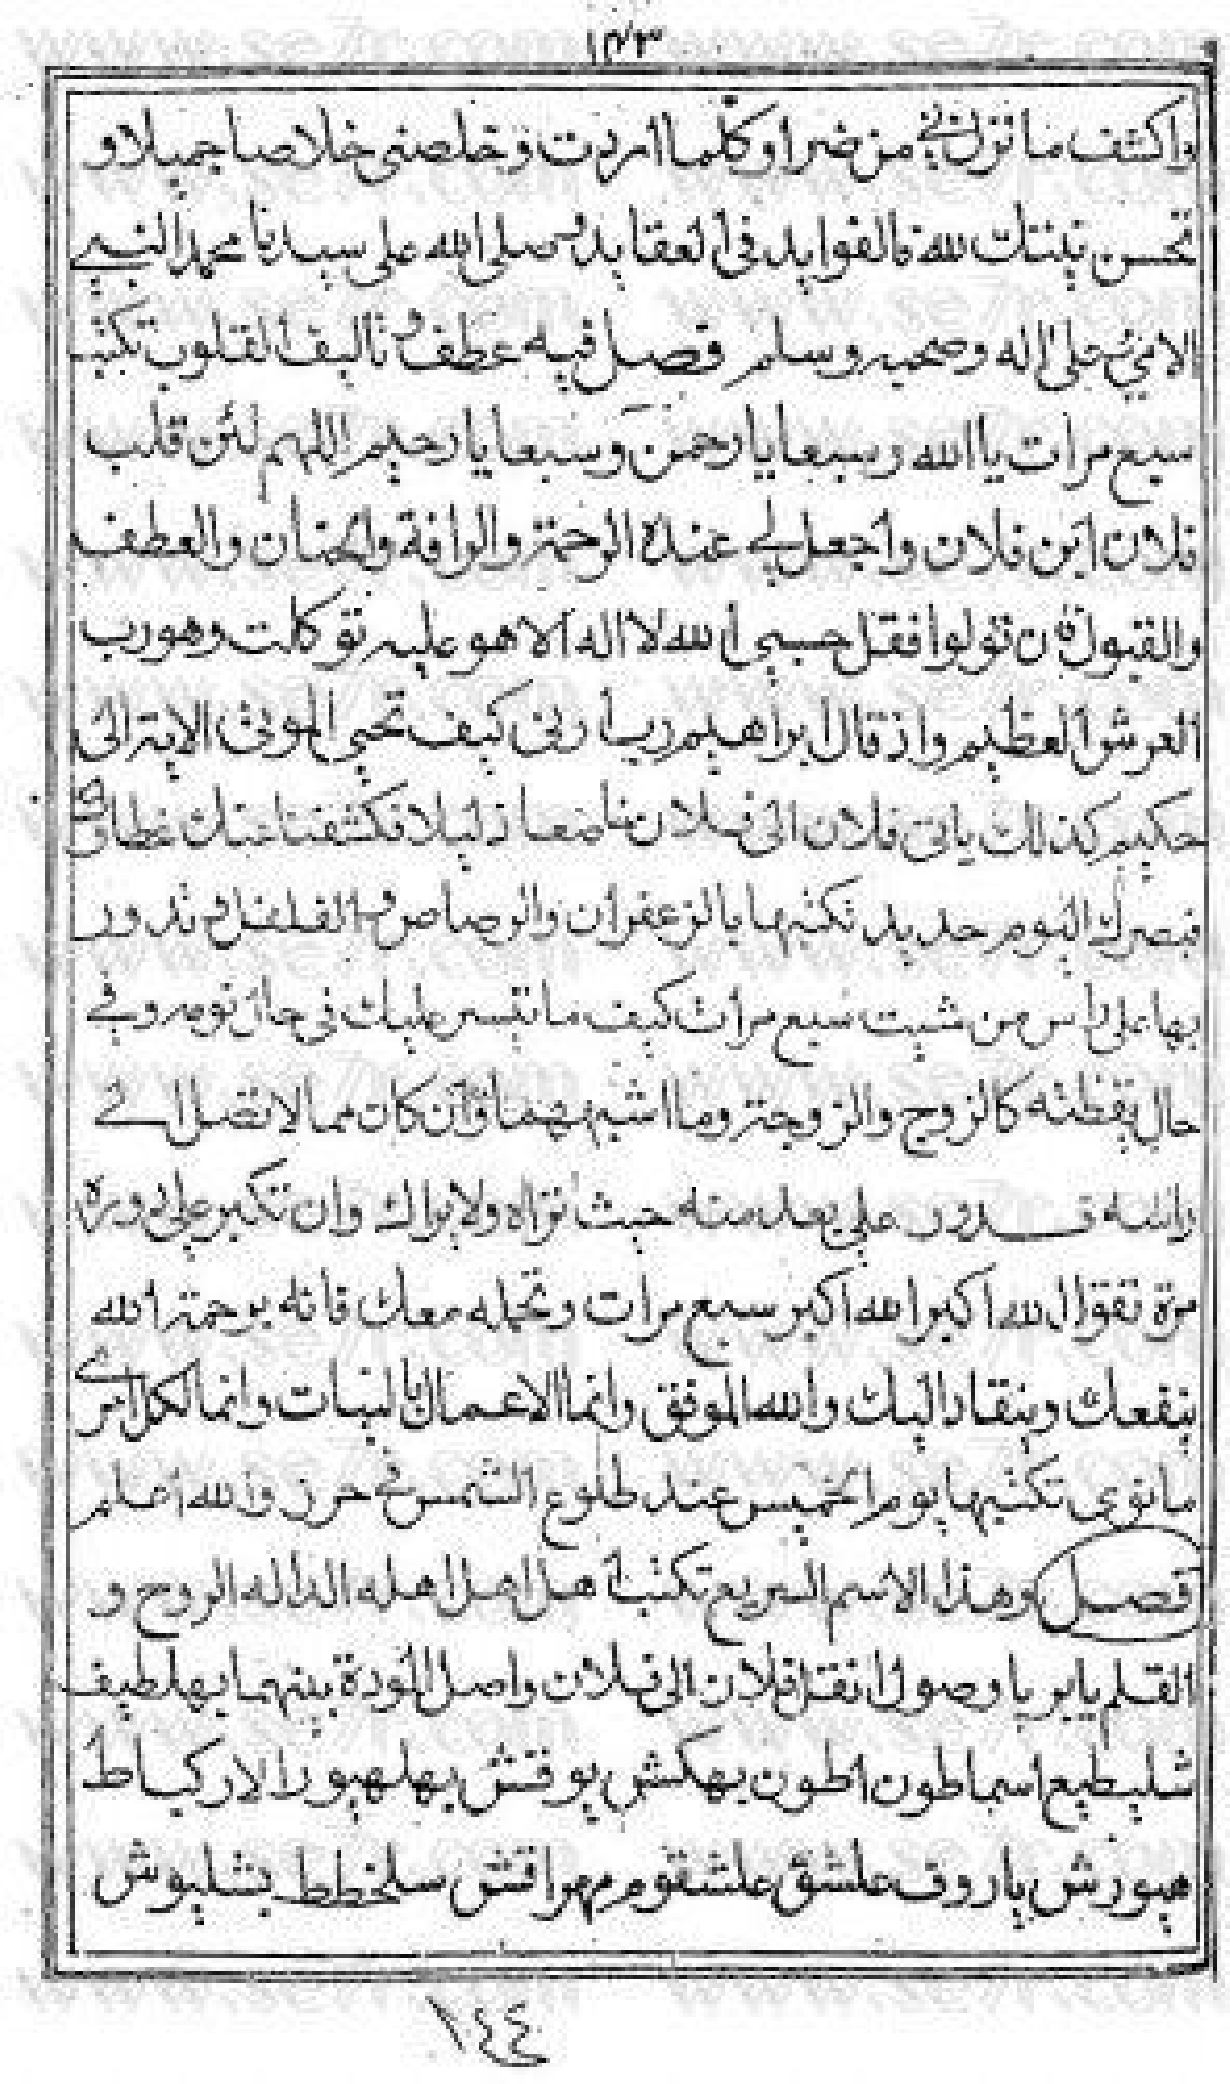 ١٤٣
واكشف ما نزل بي من ضر او كلما اردت وخلصني خلاصا جميلا و
تحسن نيتك لله فالفوايد في العقايد وصلى الله على سيدنا محمد النبي
الامي وعلى اله وصحبه وسلم فصل فيه عطف وتاليف القلوب تكتب
سبع مرات يا الله وسبعا يا رحمن وسبعا يا رحيم اللهم لين قلب
فلان ابن فلان واجعل لي عنده الرحمة والرافة والحنان والعطف
والقبول فان تولوا فقل حسبي الله لا اله الا هو عليه توكلت وهو رب
العرش العظيم واذ قال ابراهيم رب ارني كيف تحيي الموتى الاية الى
حكيم كذلك ياتي فلان الى فلان خاضعا ذليلا فكشفنا عنك غطاءك
فبصرك اليوم حديد تكتبها بالزعفران والرصاص والفلفل وتدور
بها على راس من شيت سبع مرات كيف ما تيسر عليك في حال نومه وفي
حال يقظته كالزوج والزوجة وما اشبههما وان كان مما لا تصل الى
راسه فدور على بعد منه حيث تراه ولا يراك وان تكبر على دورة
مرة تقول الله اكبر الله اكبر سبع مرات وتحمله معك فانه برحمة الله
ينفعك وينقاد اليك والله الموفق وانما الاعمال بالنيات وانما لكل امرئ
ما نوى تكتبها يوم الخميس عند طلوع الشمس في حرز والله اعلم
فصل وهذا الاسم السريع تكتب هلا هلا هله الداله الروح و
القلم يا بر يا وصول انقل فلان الى فلان واصل المودة بينهما بهلطيف
شليطيع اسماطون اطون بهكش يوقش بهلهيورا لاركياط
هيورش ياروف علشق علشقوم مهراقش سلخطط بشليوش
١٤٤